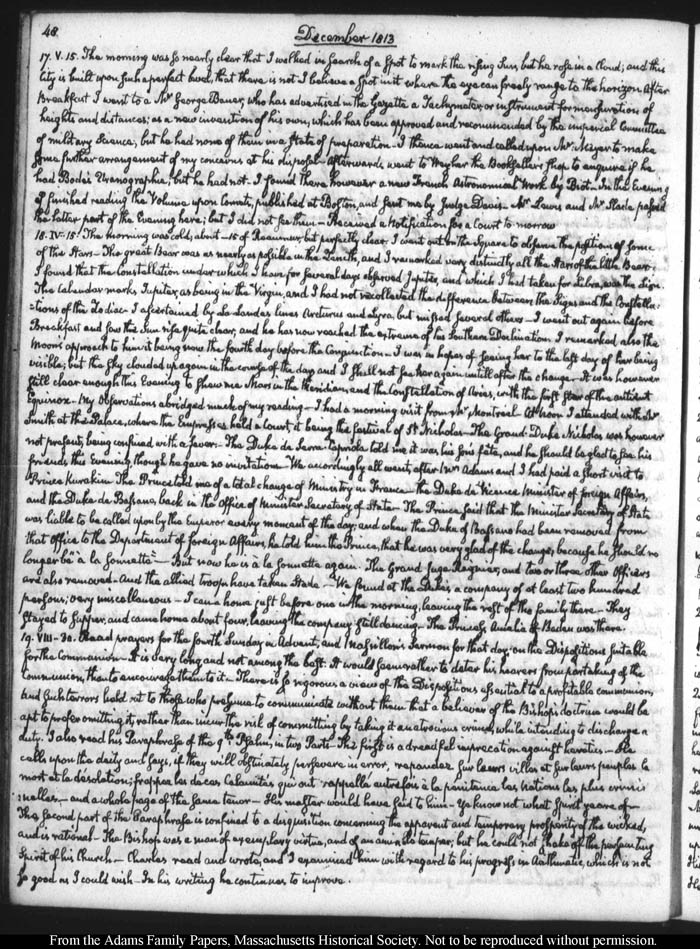 48.
December 1813
17. V. 15. The morning was so nearly clear that I walked in search of a Spot to mark the rising Sun, but he rose in a Cloud; and this
City is built upon such a perfect level, that there is not I believe a Spot in it where the eye can freely range to the horizon. After
Breakfast I went to a Mr George Bauer, who has advertised in the Gazette a Tachymeter, or instrument for mensuration of
heights and distances; as a new invention of his own, which has been approved and recommended by the imperial Committee
of military Science, but he had none of them in a State of preparation. I thence went and called upon Mr Meyer to make
some further arrangement of my concerns at his disposal. Afterwards went to Weyher the Bookseller's shop to enquire if he
had Bode's Uranographia, but he had not. I found there however a new French Astronomical Work by Biot. In the Evening
I finished reading the Volume upon Comets, published at Boston, and sent me by Judge Davis. Mr Lewis and Mr Slade passed
the latter part of the Evening here; but I did not see them. Received a Notification for a Court to-morrow
18. IV. 15. The morning was cold, about -15 of Reaumur but perfectly clear. I went out on the Square to observe the position of some
of the Stars. The great Bear was as nearly as possible in the Zenith, and I remarked very distinctly all the Stars of the little Bear.
I found that the Constellation under which I have for several days observed Jupiter, and which I had taken for Libra, was the Lion.
The Calendar marks Jupiter as being in the Virgin, and I had not recollected the difference between the Signs and the Constella-
-tions of the Zodiac. I ascertained by La Lande's lines Arcturus and Lyra, but missed several others. I went out again before
Breakfast and saw the Sun rise quite clear, and he has now reached the extreme of his Southern Declination. I remarked also the
Moon's approach to him it being now the fourth day before the Conjunction. I was in hopes of seeing her to the last day of her being
visible; but the Sky clouded up again in the course of the day and I shall not see her again untill after the change. It was however
still clear enough this Evening to shew me Mars in the Meridian, and the Constellation of Aries, with the first Star of the antient
Equinox. My Observations abridged much of my reading. I had a morning visit from Mr Montréal. At Noon I attended with Mr
Smith at the Palace, where the Empresses held a Court, it being the festival of St Nicholas. The Grand Duke Nicholas was however
not present, being confined with a fever. The Duke de Serra Capriola told me it was his Son's fête, and he should be glad to see his
friends this Evening, though he gave no invitations. We accordingly all went, after Mrs Adams and I had paid a short visit to
Prince Kurakin. The Prince told me of a total change of Ministry in France. the Duke de Vicence Minister of foreign Affairs,
and the Duke de Bassano, back in the Office of Minister Secretary of State. The Prince said that the Minister Secretary of State
was liable to be called upon by the Emperor every moment of the day; and when the Duke of Bassano had been removed from
that office to the Department of Foreign Affairs, he told him the Prince, that he was very glad of the change, because he should no
longer be "à la Sonnette". But now he is à la Sonnette again. The Grand Juge Regnier, and two or three other Officers
are also removed. And the allied troops have taken Stade. We found at the Duke's a company of at least two hundred
persons; very miscellaneous. I came home just before one in the morning, leaving the rest of the family there. They
stayed to supper, and came home about four, leaving the company still dancing. The Princess Amalia of Baden was there.
19. VIII. 30. Read prayers for the fourth Sunday in Advent, and Massillon's Sermon for that day. on the Dispositions suitable
for the Communion. It is very long and not among the best. It would seem rather to deter his hearers from partaking of the
Communion, than to encourage them to it. There is so rigorous a view of the Dispositions essential to a profitable communion,
and such terrors held out to those who presume to communicate without them that a believer of the Bishop's doctrine would be
apt to prefer omitting it, rather than incur the risk of committing by taking it an atrocious crime, while intending to discharge a
duty. I also read his Paraphrase of the 9th Psalm, in two Parts. The first is a dreadful imprecation against heretics. He
calls upon the deity and says, if they will obstinately persevere in error, repandez sur leurs villes et sur leurs peuples la
mort et la désolation; frappez les de ces Calamités qui ont rappellé autrefois à la penitence les nations les plus crimi-
-nelles. and a whole page of the same tenor. His master would have said to him. Ye know not what Spirit ye are of.
The second part of the Paraphrase is confined to a disquisition concerning the apparent and temporary prosperity of the wicked,
and is rational. The Bishop was a man of exemplary virtue, and of an amiable temper; but he could not shake off the persecuting
Spirit of his Church. Charles read and wrote, and I examined him with regard to his progress in Arithmetic, which is not
so good as I could wish. In his writing he continues to improve.
From the Adams Family Papers, Massachusetts Historical Society. Not to be reproduced without permission.